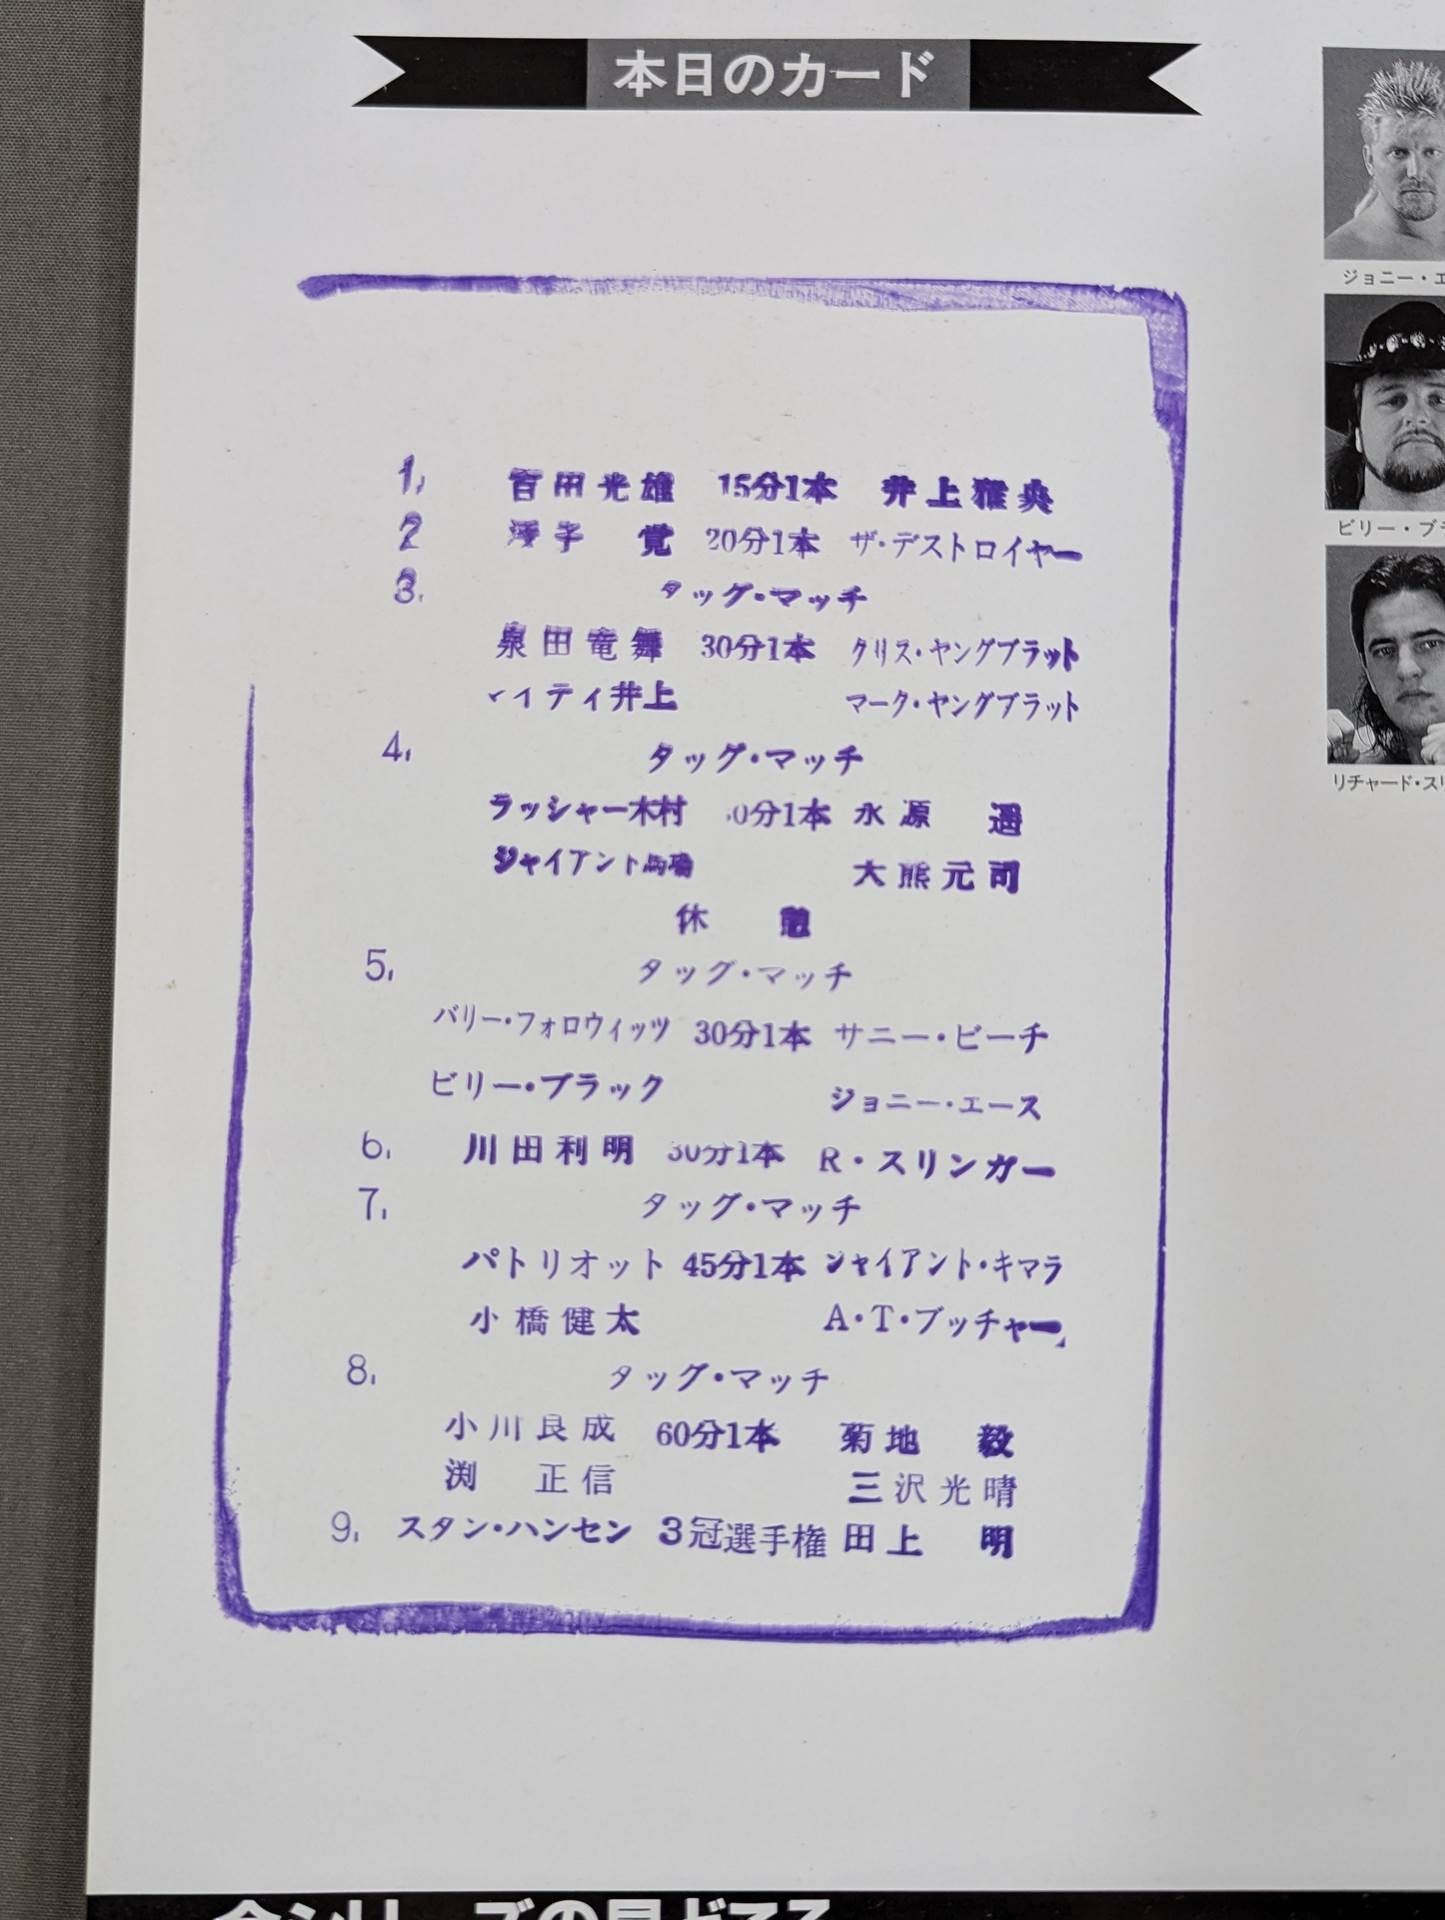 本日のカード
1, 百田光雄 15分1本 井上雅央
2 覚 20分1本 ザ・デストロイヤー
3, タッグ・マッチ
泉田竜舞 30分1本 クリス・ヤングブラット
マイティ井上 マーク・ヤングブラット
4, タッグ・マッチ
ラッシャー木村 0分1本 永源 遥
ジャイアント馬場 大熊元司
休 憩
5, タッグ・マッチ
バリー・フォロウィッツ 30分1本 サニー・ビーチ
ビリー・ブラック ジョニー・エース
6, 川田利明 30分1本 R・スリンガー
7, タッグ・マッチ
パトリオット 45分1本 ジャイアント・キマラ
小橋健太 A・T・ブッチャー
8, タッグ・マッチ
小川良成 60分1本 菊地 毅
渕 正信 三沢光晴
9, スタン・ハンセン 3冠選手権 田上 明
ジョニー・エ
ビリー・ブラ
リチャード・スリ
今シリーズの見どころ